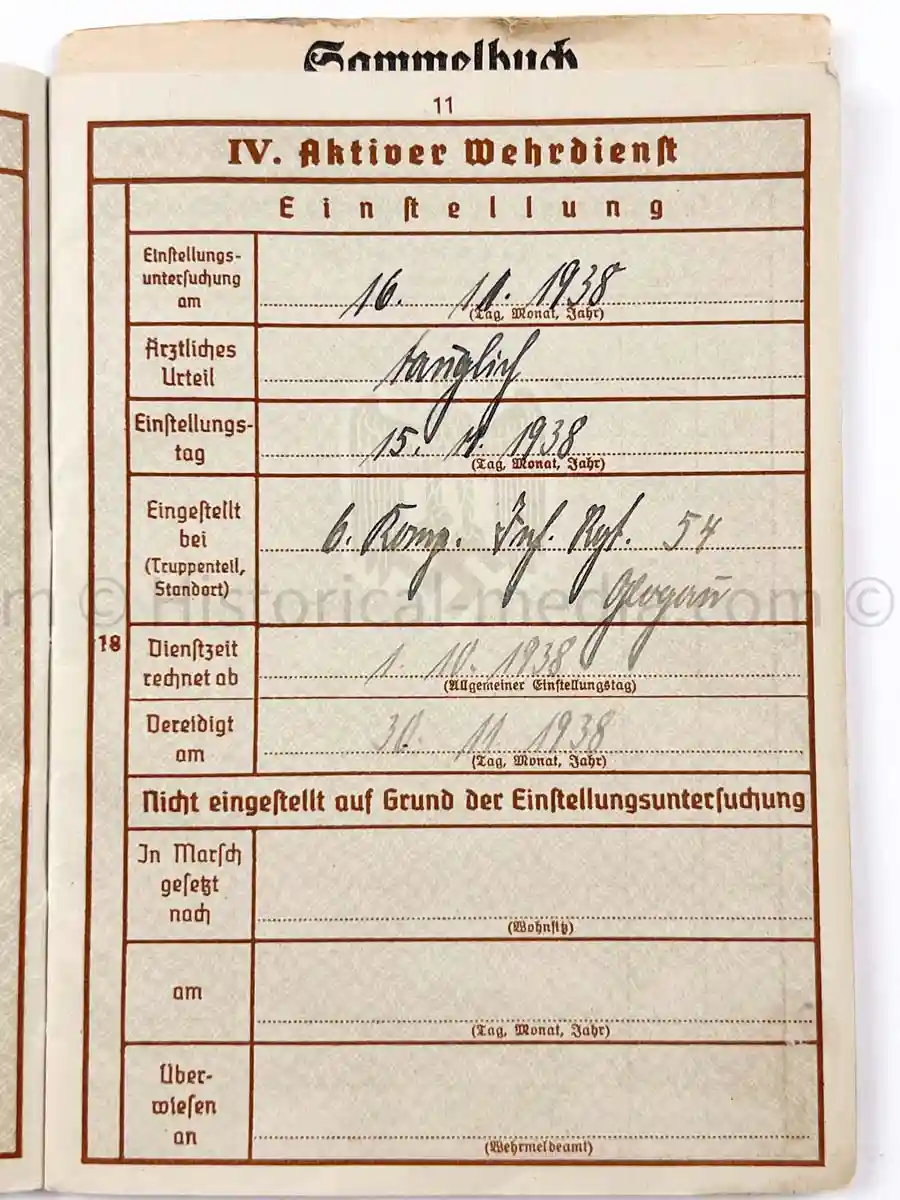 Sammelbuch
11
IV. Aktiver Wehrdienst
Einstellung
Einstellungs-
untersuchung
am
16. 11. 1938
(Tag, Monat, Jahr)
Ärztliches
Urteil
tauglich
Einstellungs-
tag
15. 11. 1938
(Tag, Monat, Jahr)
Eingestellt
bei
(Truppenteil,
Standort)
6. Komp. Inf. Rgt. 54
Glogau
© Historical-media.com ©
18
Dienstzeit
rechnet ab
1. 10. 1938
(Allgemeiner Einstellungstag)
Vereidigt
am
30. 11. 1938
(Tag, Monat, Jahr)
Nicht eingestellt auf Grund der Einstellungsuntersuchung
In Marsch
gesetzt
nach
(Wohnsitz)
am
(Tag, Monat, Jahr)
Über-
wiesen
an
(Wehrmeldeamt)